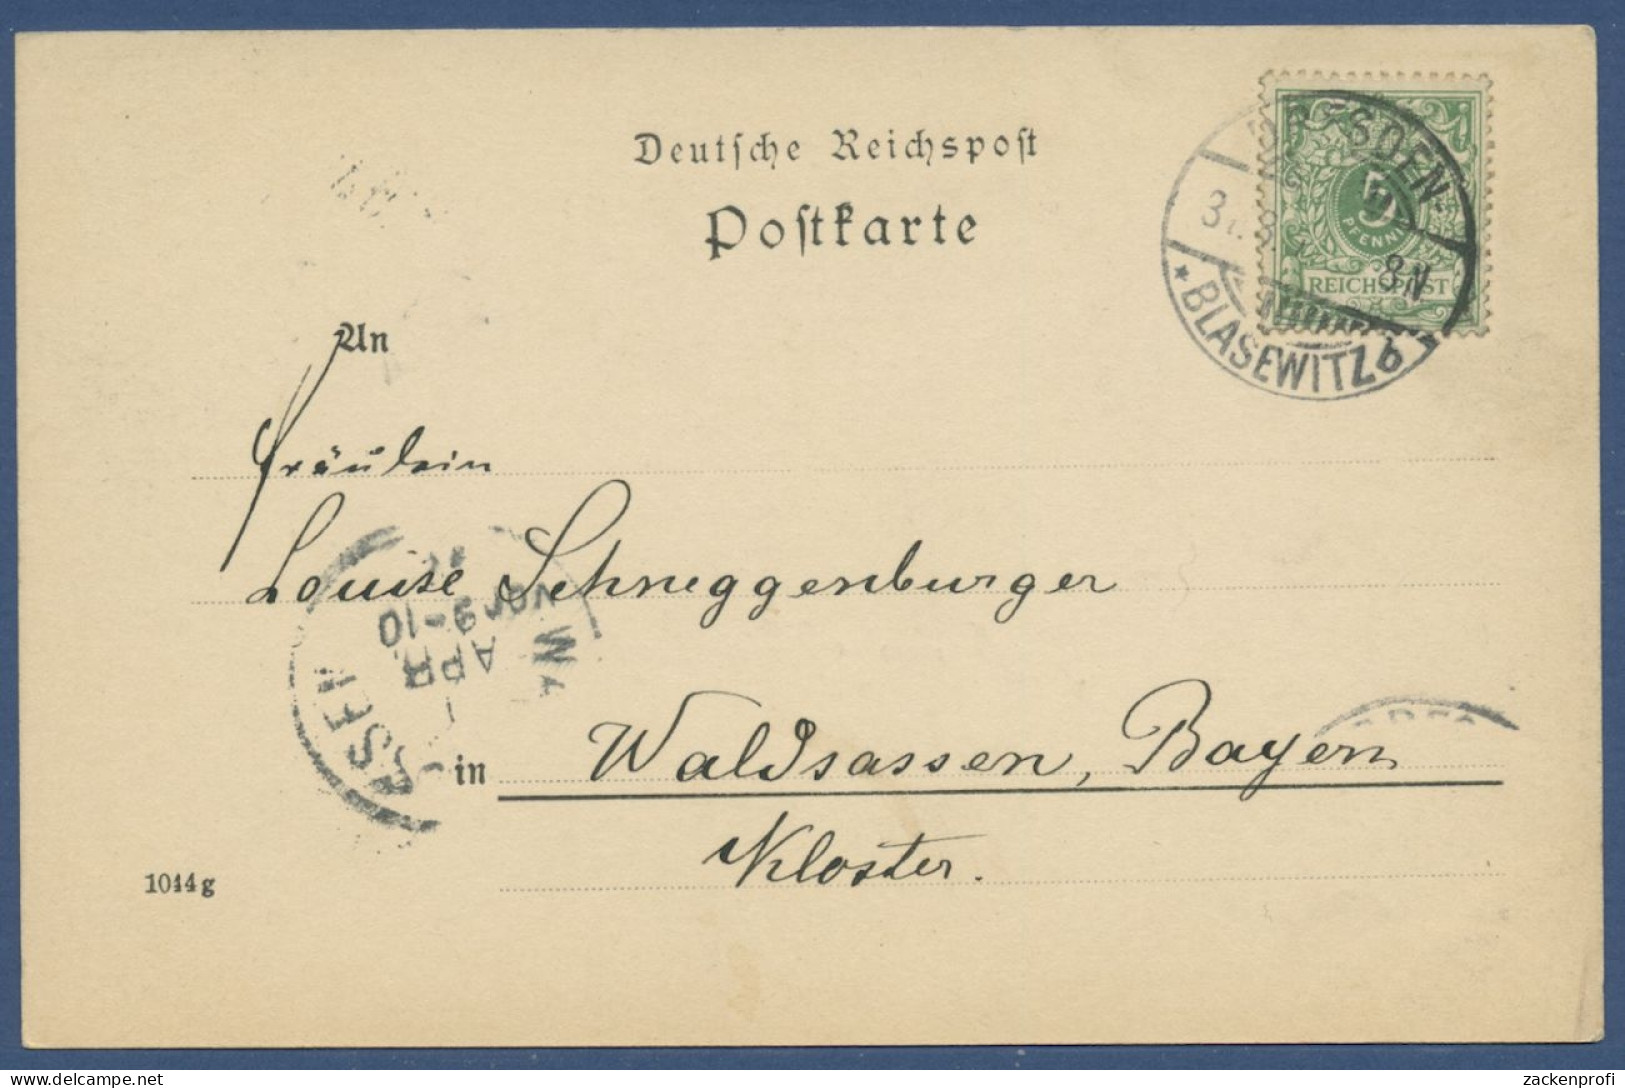 Deutsche Reichspost
Postkarte
DRESDEN-
8N
* BLASEWITZ b
5
PFENNIG
REICHSPOST
An
Fräulein
Louise Schneggenburger
VOR
9-10
APR
in Waldsassen, Bayern
Kloster.
1044g
zackenprofi